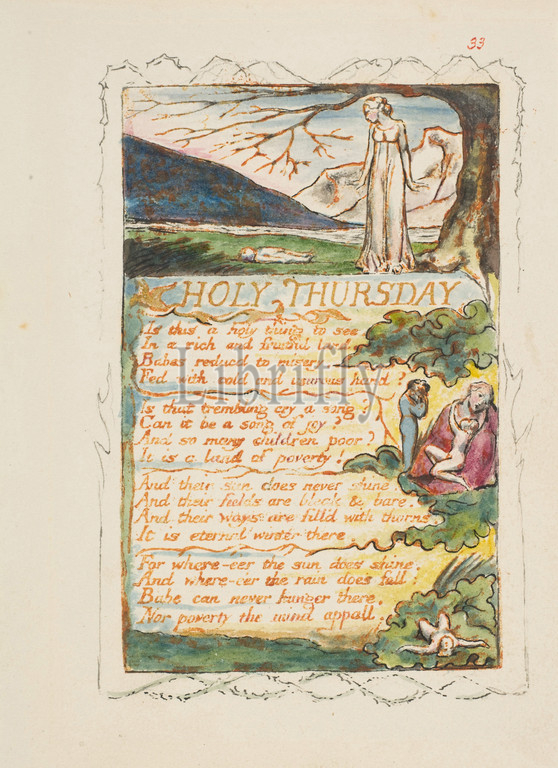 33
HOLY THURSDAY
Is this a holy thing to see,
In a rich and fruitful land,
Babes reduced to misery,
Fed with cold and usurous hand?
Is that trembling cry a song?
Can it be a song of joy?
And so many children poor?
It is a land of poverty!
And their sun does never shine.
And their fields are bleak & bare.
And their ways are fill'd with thorns
It is eternal winter there
For where-e'er the sun does shine,
And where-e'er the rain does fall:
Babe can never hunger there,
Nor poverty the mind appall.
© Librifly